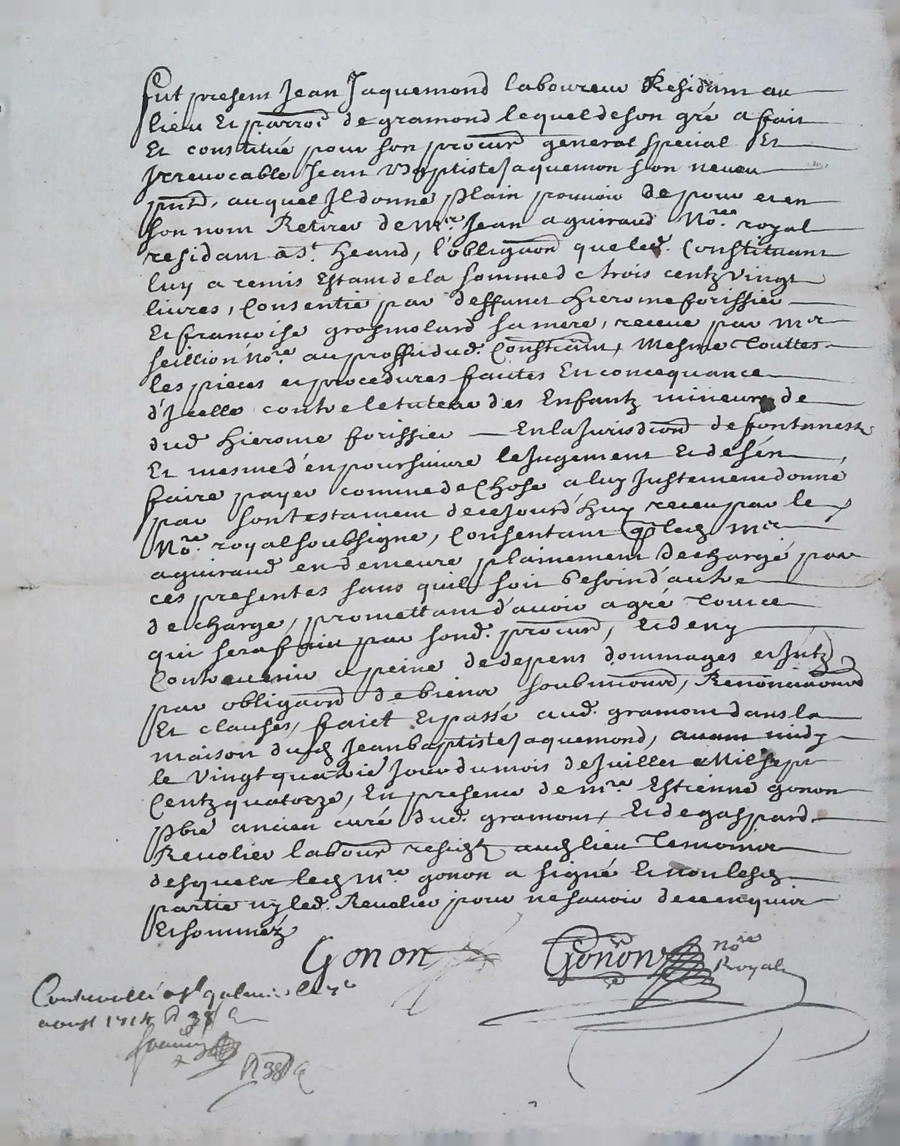 fut present Jean Jaquemond laboureur Residant au
lieu Et parroi de gramond lequel de son gré a fait
Et constitué pour son procur general special Et
Irrevocable Jean Baptiste Jaquemon son neveu
pnt, auquel Il donne plain pouvoir de pour et en
son nom Retirer de Mr Jean aguiraud Nore royal
residant a St heand, l'obligaon que led. Constituant
luy a remis Estant de la somme de trois centz vingt
livres, Consentie par deffunct hierome forissier
Et francoise grosmolard sa mere, receue par Mr
seillion Nore au proffit dud. Constituant, Mesme Touttes
les pieces et procedures faites En concequance
d'Icelle contre le tuteur des Enfantz mineurs de
dud hierome forissier — En la Jurisdiond de fontaness
Et mesme d'en poursuivre le Jugement Et de s'en
faire payer comme de Chose a luy Justement donné
par son testament de cejourd'huy receu par le
Nore royal soubsigné, Consentant q led Mr
aguiraud en demeure plainement dechargé par
ces presentes sans quil soit besoin d'autre
decharge, promettant d'avoir agré Tout ce
qui sera fait par sond. procur, Et de ny
Contrevenir a peine de depens dommages et Intz
par obligaond de biens soubmiond, Renonciaond
Et clauses, faict Et passé aud. gramont dans la
maison dud Jean baptiste Jaquemond, avant midy
le Vingt quatrie Jour du mois de Juillet Mil sept
Centz quatorze, En presence de mre Estienne gonon
pbre ancien curé dud. gramont, Et de gaspard
Revolier labour resigt aud lieu Temoins
desquels led Mre gonon a signé Et non lesd
partie ny led. Revolier pour ne savoir de ce enquis
Et somméz
Gonon Gonon nore
Royal
Controollé a St galmier le
aoust 1714 R 38
R 38